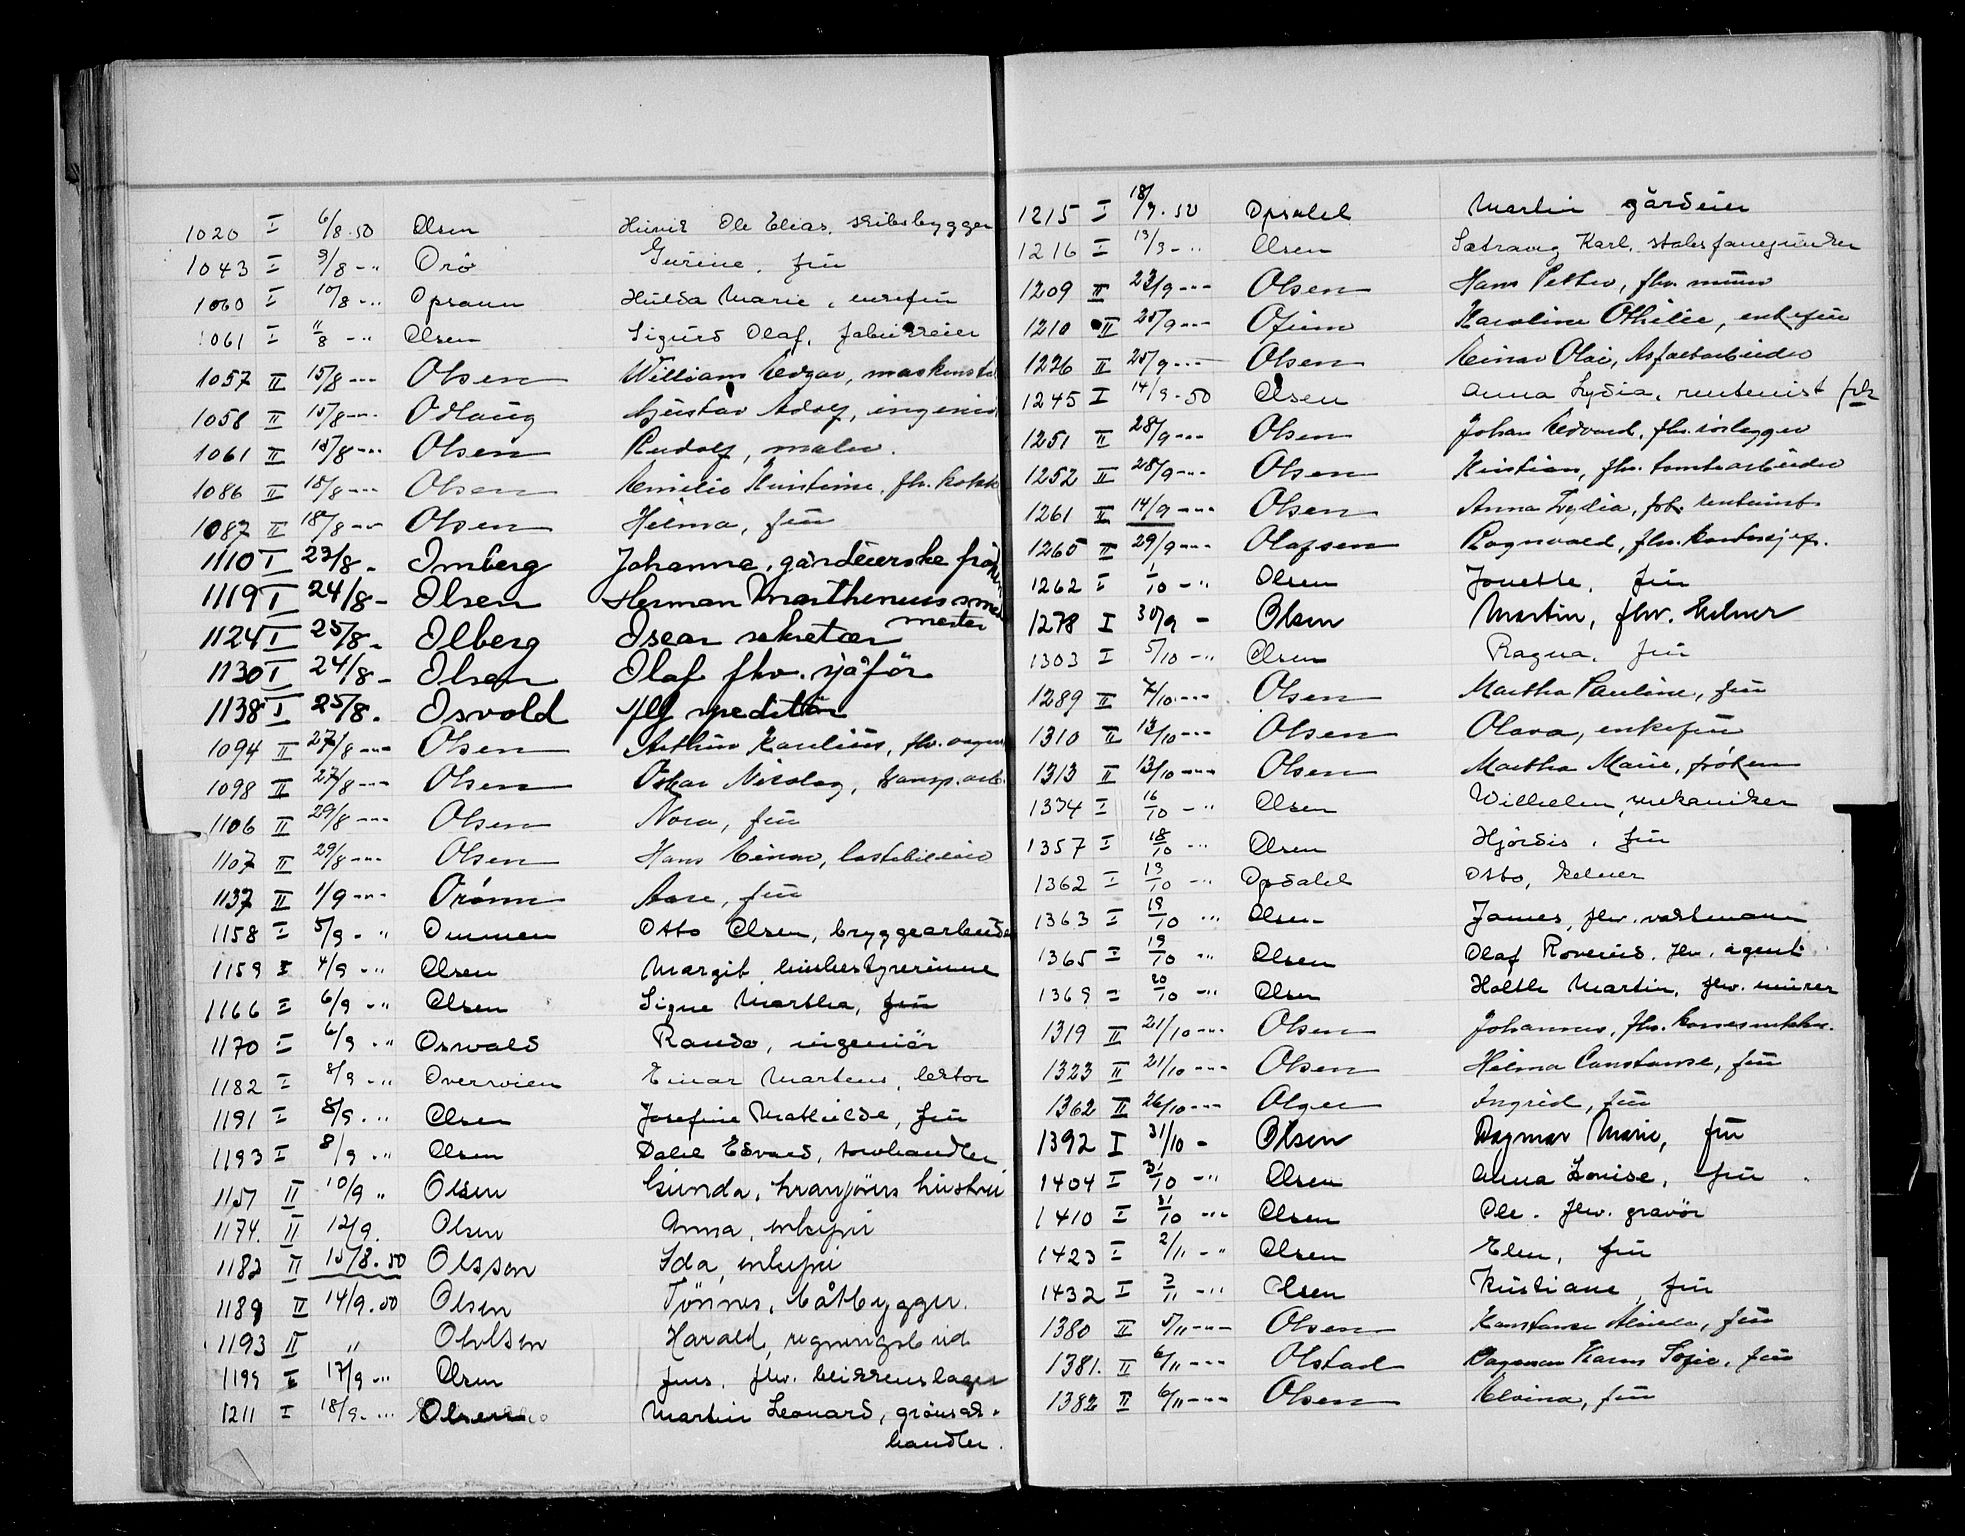 1020 I 6/8.50 Olsen Hinrik Ole Elias, skibsbygger
1043 I 9/8 -" Orø Gurine, fru
1060 I 10/8 -" Opsann Hulda Marie, enkefru
1061 I 11/8 -" Olsen Sigurd Olaf, fabrikkeier
1057 II 15/8 -"- Olsen William Edgar,
1058 II 15/8 -"- Odlaug Gustav Adolf, ingeniør
1061 II 15/8 -"- Olsen Rudolf, maler.
1086 II 18/8 -"- Olsen Emilie Kristine, fhv. kokk
1087 II 18/8 -"- Olsen Helma, fru
1110 I 23/8 - Omberg Johanna, gårdeierske frøken
1119 I 24/8 - Olsen Herman Marthenius smed
mester
1124 I 25/8 - Olberg Oscar sekretær
1130 I 24/8 - Olsen Olaf fhv. sjåfør
1138 I 25/8. Osvold Alf speditør
1094 II 27/8 -"- Olsen Arthur Kaulius, fhv.
1098 II 27/8 -"- Olsen Oskar Nicolay, transp. arb.
1106 II 29/8 -"- Olsen Nora, fru
1107 II 29/8 -"- Olsen Hans Einar, lastebileier
1137 II 1/9 -"- Orønn Aase, fru
1158 I 5/9 - " Ommen Otto Olsen, bryggearbeider
1159 I 4/9 -" Olsen Margit, bestyrerinne
1166 I 6/9 -" Olsen Signe Martha, fru
1170 I 6/9 -" Oswald Randø, ingeniør
1182 I 8/9 -" Overvien Einar Martens, lektor
1191 I 8/9 -" Olsen Josefine Mathilde, fru
1193 I 8/9 -" Olsen Dahl Edvard, tobhandler
1157 II 10/9 " Olsen Gunda, kranfører hustru
1174. II 12/9. Olsen Anna, enkefru
1182 II 15/8.50 Olsson Ida, enkefru
1189 II 14/9.50 Olsen Tønnes, båtbygger.
1193 II " Oholsen Harald, regningsbud
1199 I 17/9 -" Olsen Jens, fhv. blikkenslager
1211 I 18/9 -" Olsen Martin Leonard, grønsak-
handler.
1215 I 18/9.50 Opsahl Martin gårdeier
1216 I 19/9 -" Olsen Karl,
1209 II 23/9 -"- Olsen Hans Petter, fhv. murer
1210 II 25/9 -"- Ofium Karoline Othilie, enkefru
1226 II 25/9 -"- Olsen Einar Olai, Asfaltarbeider
1245 I 14/9.50 Olsen Anna Lydia, rentenist frk
1251 II 28/9 -"- Olsen Johan Edvard, fhv. rørlegger
1252 II 28/9 -"- Olsen Kristian, fhv. tomtearbeider
1261 II 14/9 -"- Olsen Anna Lydia, frk. rentenist
1265 II 29/9 -"- Olafsen Ragnvald, fhv. kontorsjef.
1262 I 1/10 -" Olsen Jonette, fru
1278 I 30/9 - Olsen Martin, fhv. kelner
1303 I 5/10 -" Olsen Ragna, fru
1289 II 7/10 -"- Olsen Martha Pauline, fru
1310 II 12/10 -"- Olsen Olava, enkefru
1313 II 13/10 -"- Olsen Martha Marie, frøken
1334 I 16/10 -" Olsen Wilhelm, mekaniker
1357 I 18/10 -" Olsen Hjørdis, fru
1362 I 19/10 -" Opdahl Otto, kelner
1363 I 19/10 " Olsen James, fhv. vaktmann
1365 I 19/10 " Olsen Olaf Rovenius, fhv. agent
1369 I 20/10 -" Olsen Holth Martin, fhv. murer
1319 II 21/10 -"- Olsen Johannes, fhv.
1323 II 21/10 -"- Olsen Helma Constanse, fru
1362 II 26/10 -"- Olgen Ingrid, fru
1392 I 31/10 - Olsen Dagmar Marie, fru
1404 I 31/10 -" Olsen Anna Louise, fru
1410 I 31/10 -" Olsen Ole. fhv. gravør
1423 I 2/11 -" Olsen Elen, fru
1432 I 3/11 -" Olsen Kristiane, fru
1380 II 5/11 -"- Olsen Konstanse, fru
1381. II 6/11 -"- Olstad Dagmar Karen Sofie, fru
1382 II 6/11 -"- Olsen Elvina, fru